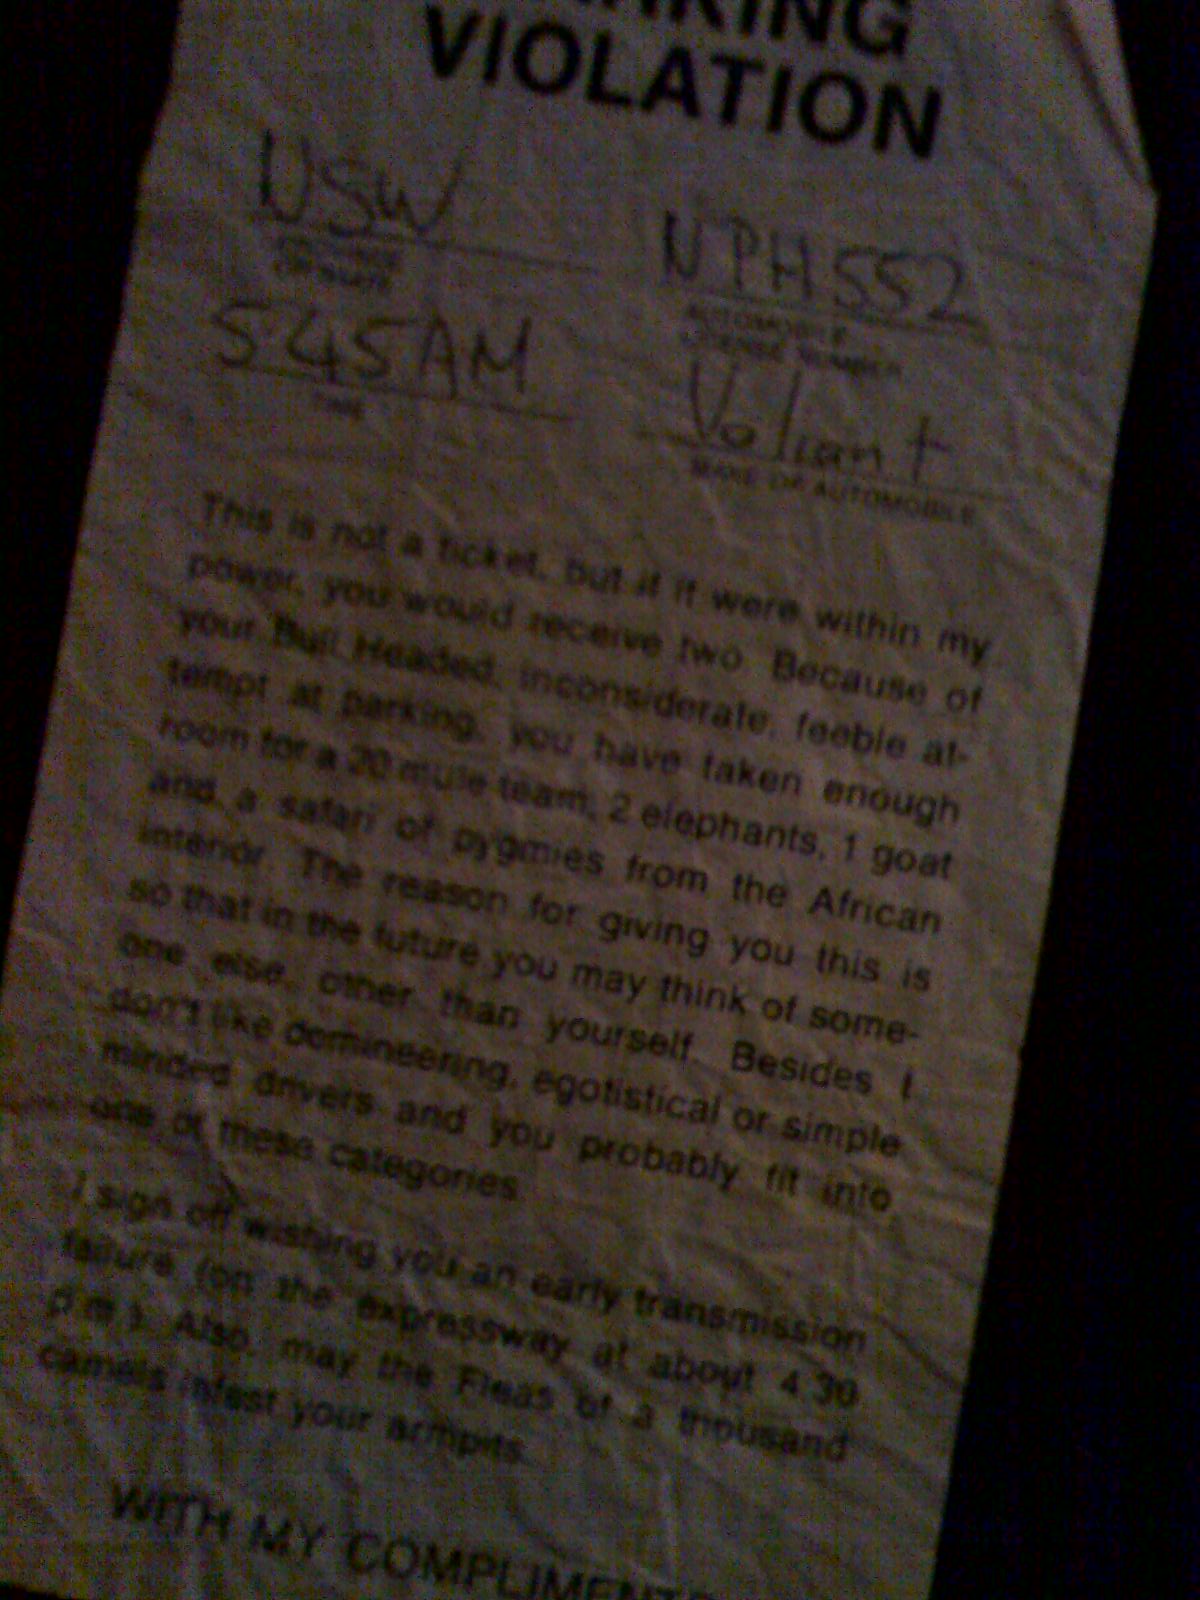 PARKING
VIOLATION
NSW
NPH552
STATE
AUTOMOBILE
LICENSE NUMBER
5.45AM
Valiant
TIME
MAKE OF AUTOMOBILE
This is not a ticket, but if it were within my
power, you would receive two. Because of
your Bull Headed, inconsiderate, feeble at-
tempt at parking, you have taken enough
room for a 20 mule team, 2 elephants, 1 goat
and a safari of pygmies from the African
interior. The reason for giving you this is
so that in the future you may think of some-
one else, other than yourself. Besides I
don't like domineering, egotistical or simple
minded drivers and you probably fit into
one of these categories.
I sign off wishing you an early transmission
failure (on the expressway at about 4:30
p.m.). Also, may the Fleas of a thousand
camels infest your armpits.
WITH MY COMPLIMENTS